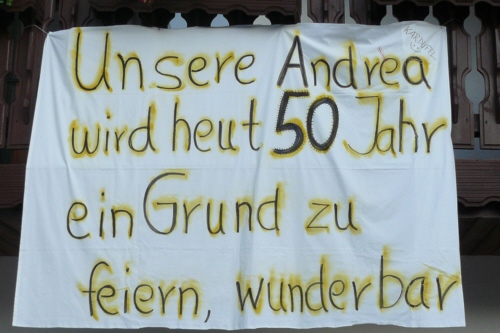 Unsere Andrea
wird heut 50 Jahr
ein Grund zu
feiern, wunderbar